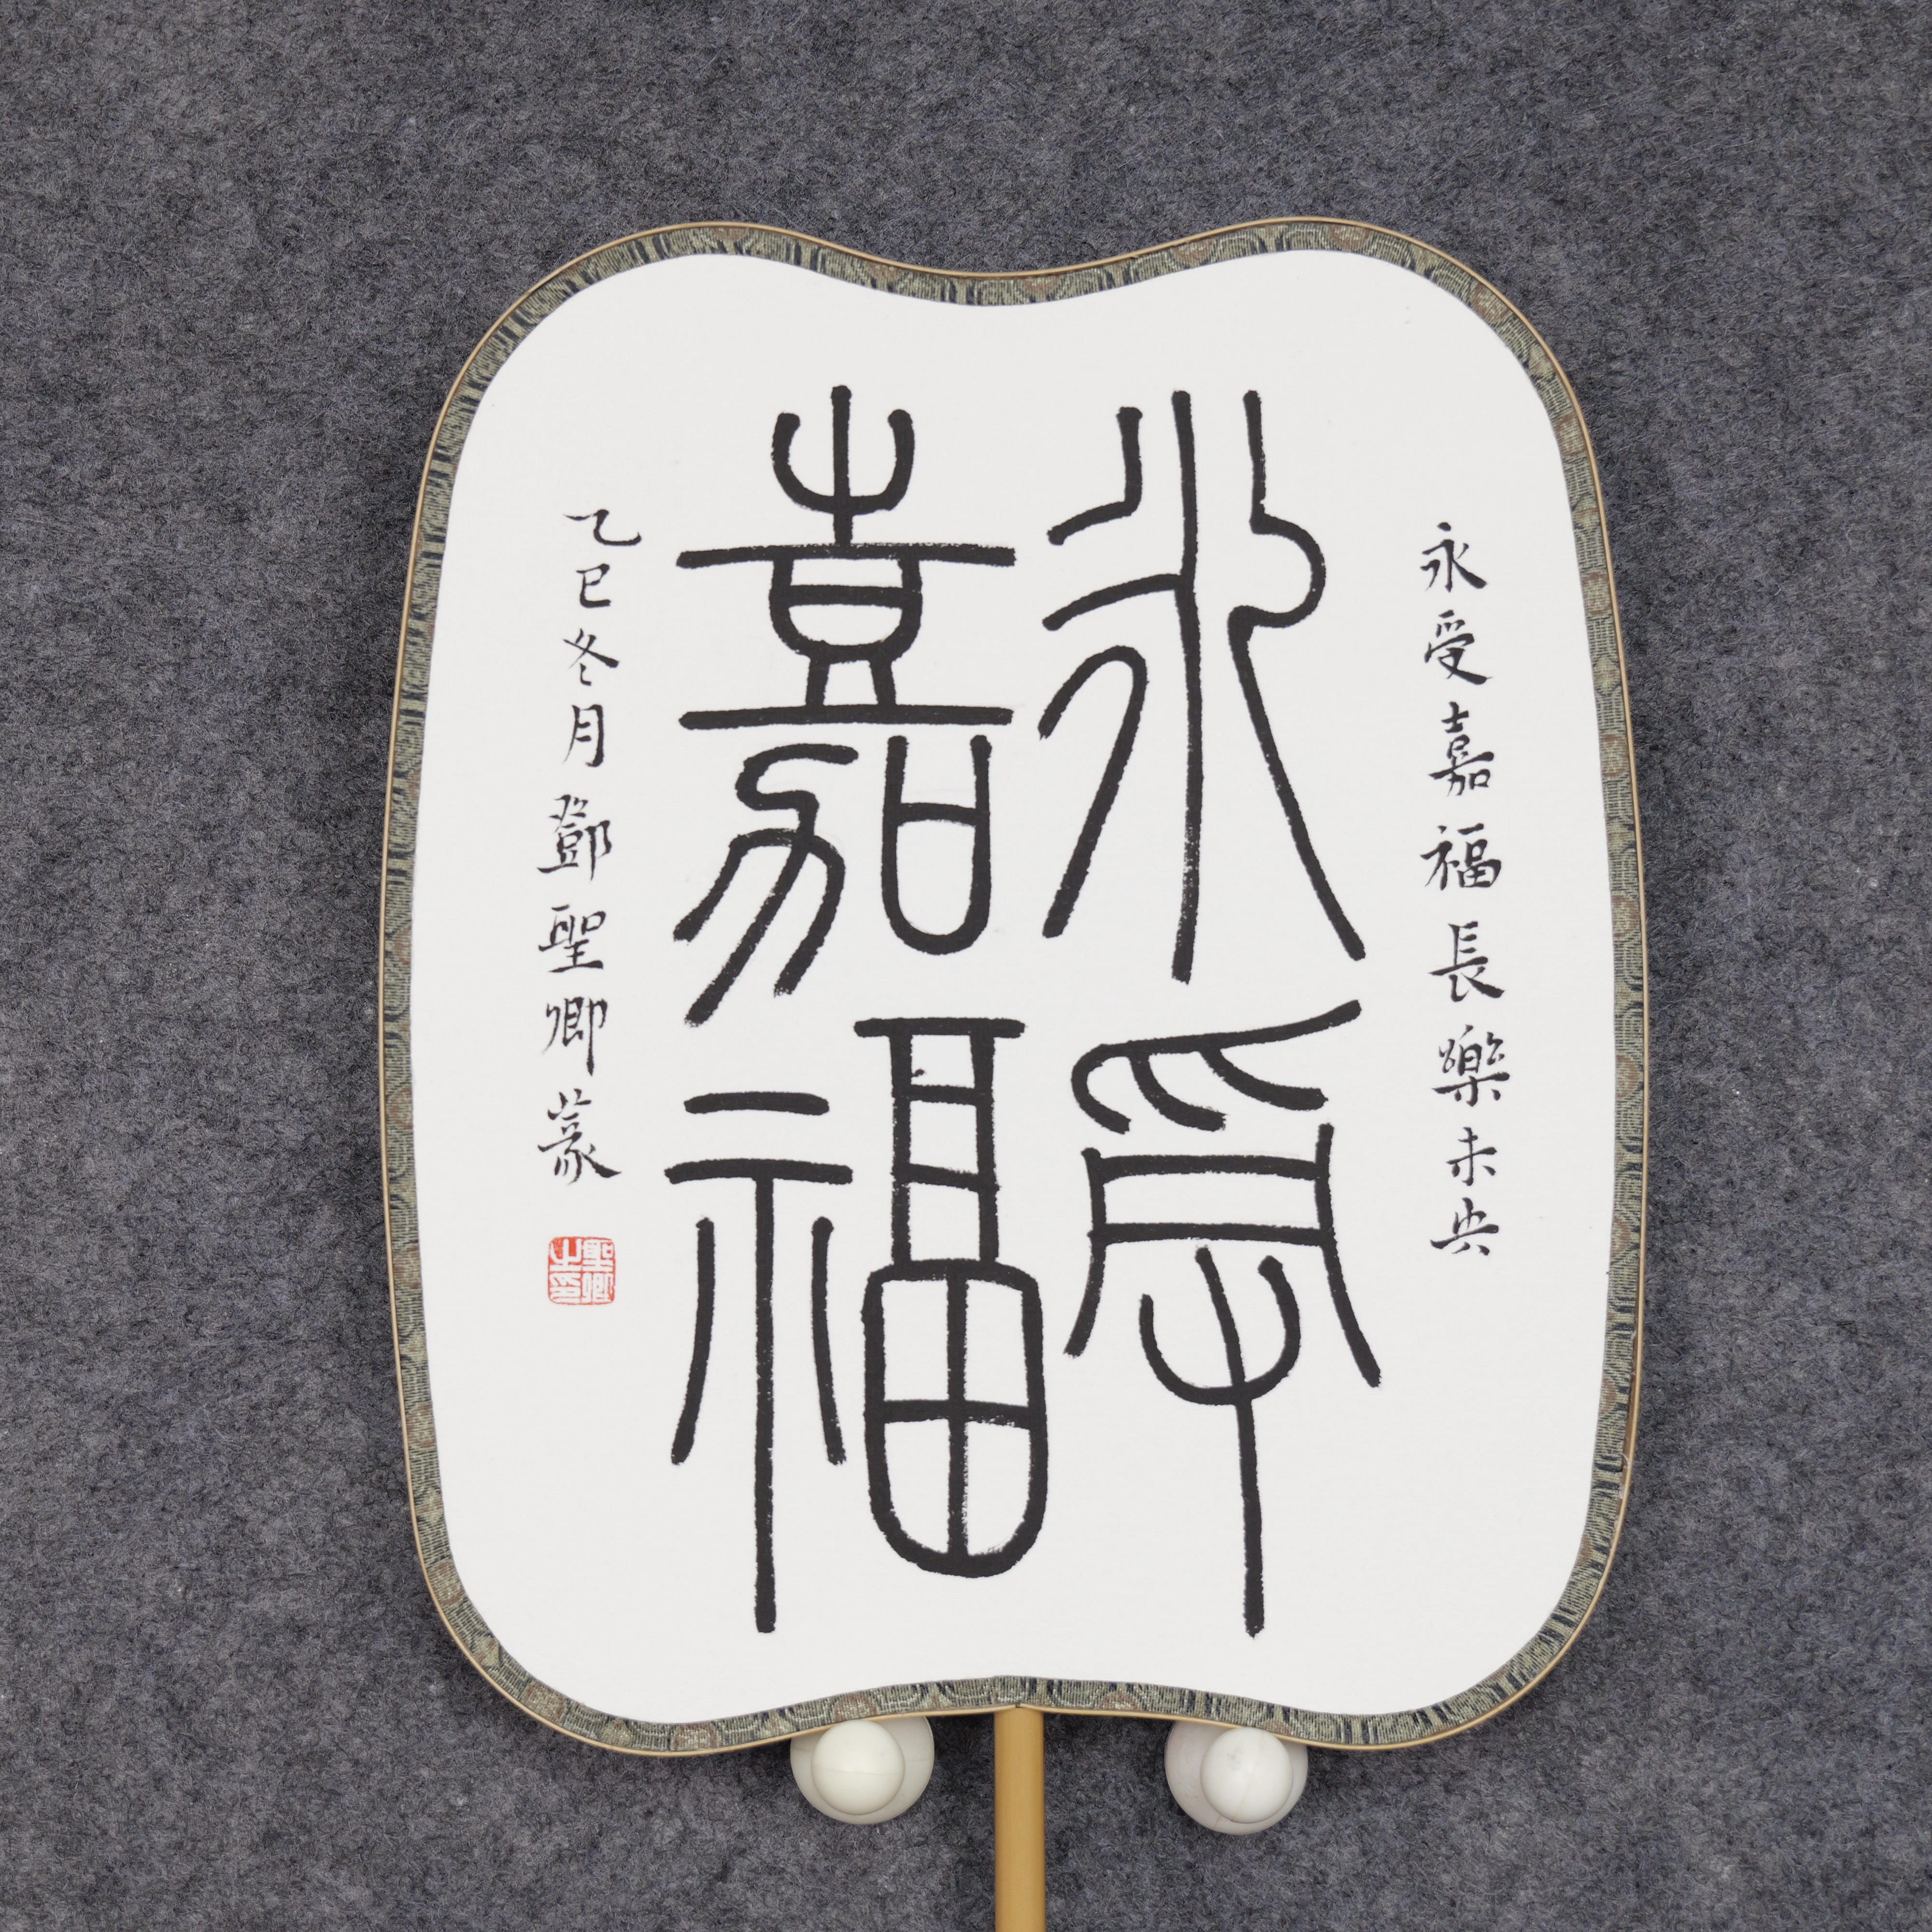 永受嘉福長樂未央
永受
嘉福
乙巳冬月鄧聖卿篆
聖卿之印